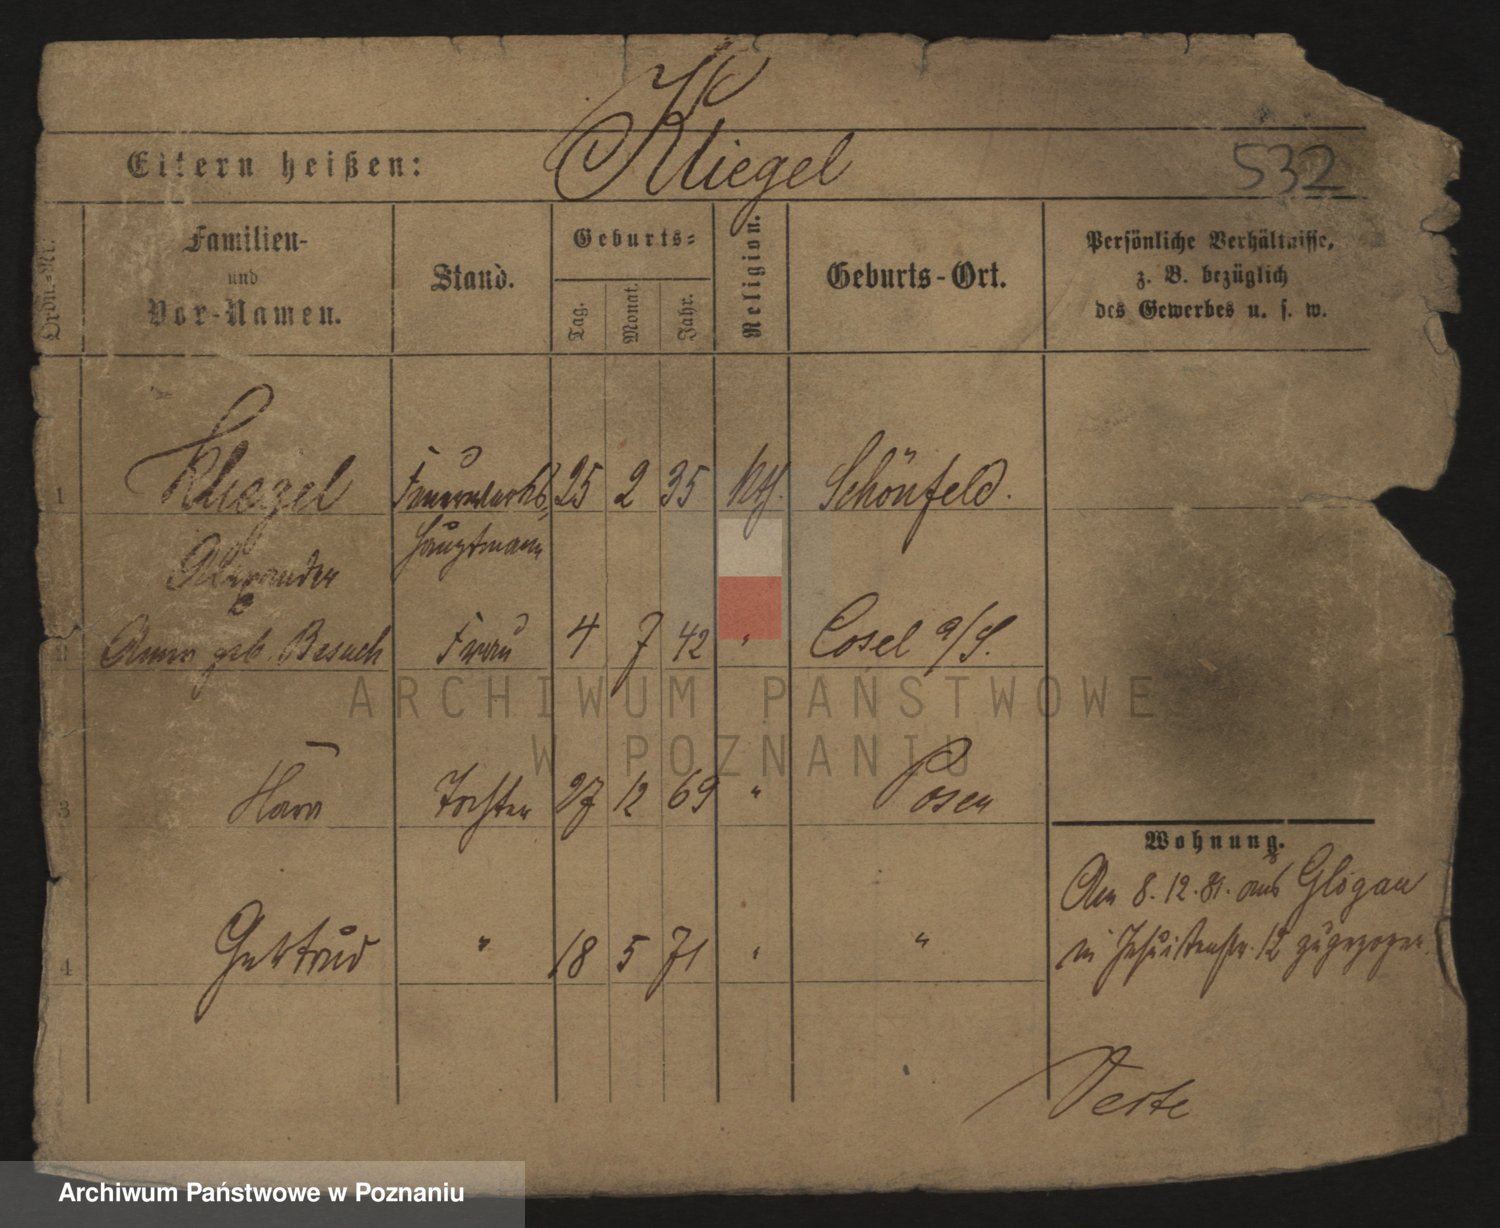 Kliegel
Eltern heißen:
532
Ordn.-Nr.
Familien-
und
Vor-Namen.
Stand.
Geburts-
Tag.
Monat.
Jahr.
Religion.
Geburts-Ort.
Persönliche Verhältnisse,
z. B. bezüglich
des Gewerbes u. s. w.
1 Kliegel Feuerwerks- 25 2 35 Kth. Schönfeld.
Alexander Hauptmann
Anna geb. Besuch Frau 4 7 42 " Cosel a/S.
3 Tochter 27 12 69 " Posen
4 Gertrud " 18 5 71 " "
Wohnung.
Am 8.12.81. aus Glogau
in Jesuitenstr. 12 zugezogen.
Verte
ARCHIWUM PAŃSTWOWE
W POZNANIU
Archiwum Państwowe w Poznaniu